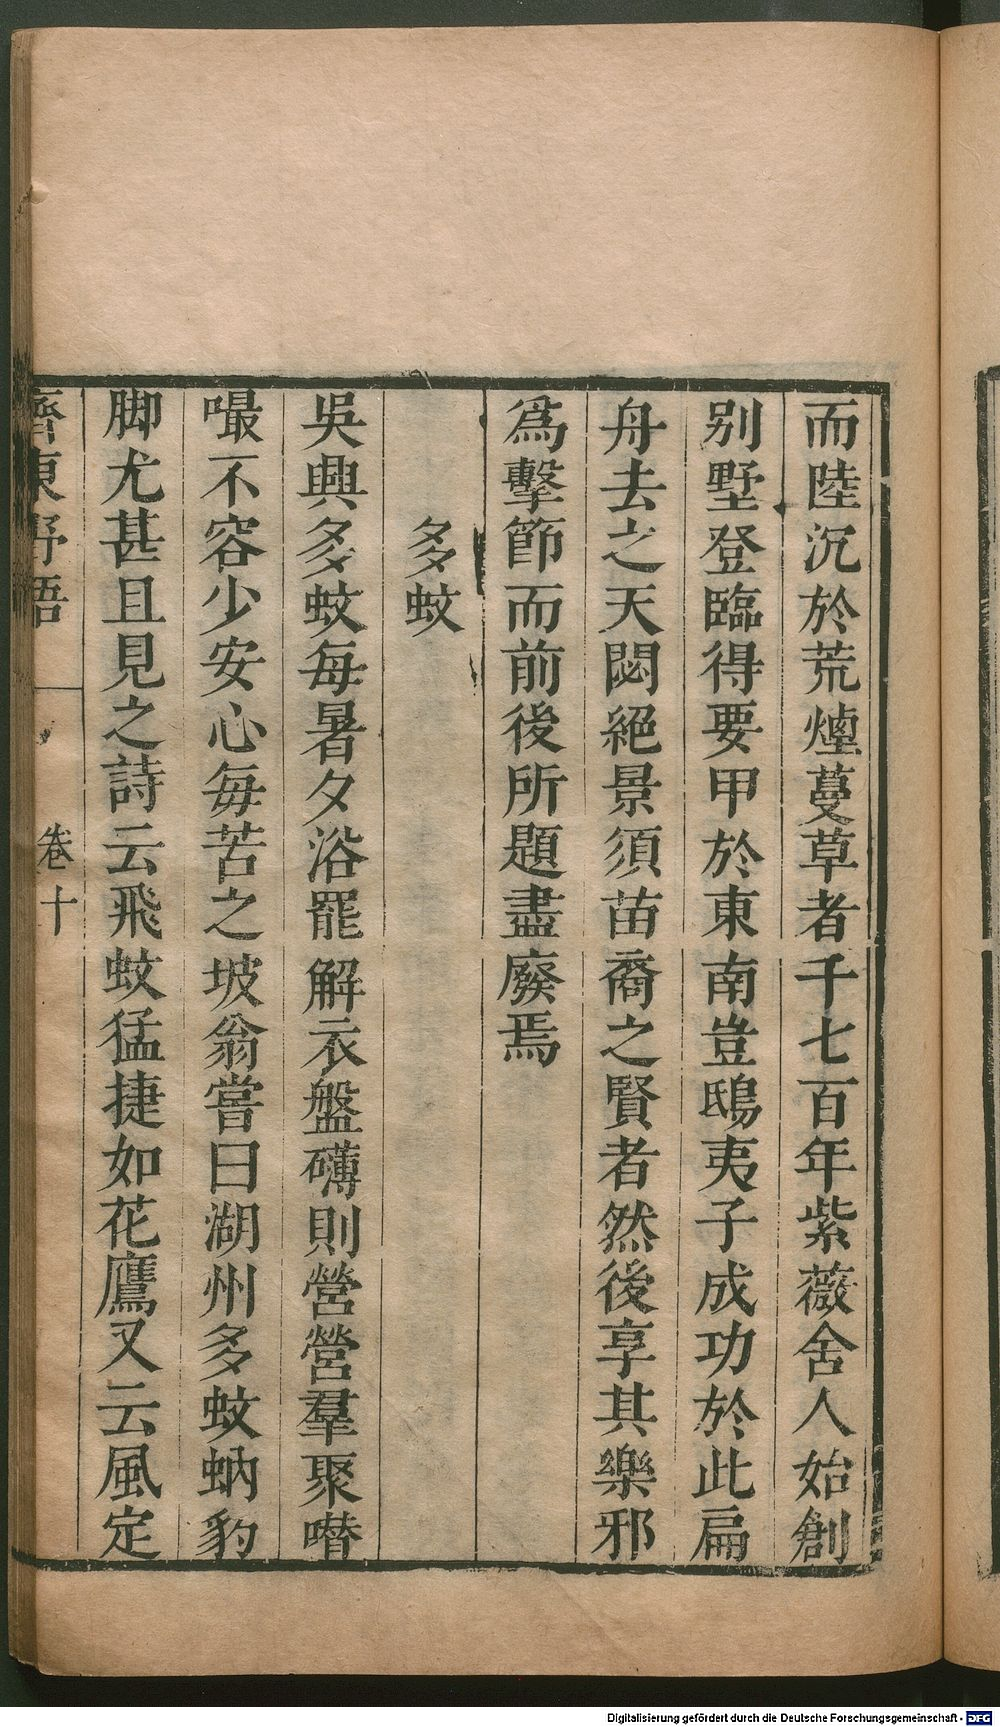 而陸沉於荒煙蔓草者千七百年紫薇舍人始創
別墅登臨得要甲於東南豈鴟夷子成功於此扁
舟去之天閟絕景須苗裔之賢者然後享其樂邪
爲擊節而前後所題盡廢焉
多蚊
吳興多蚊每暑夕浴罷解衣盤礴則營營羣聚噆
嘬不容少安心每苦之坡翁嘗曰湖州多蚊蚋豹
脚尤甚且見之詩云飛蚊猛捷如花鷹又云風定
齊東野語 卷十
Digitalisierung gefördert durch die Deutsche Forschungsgemeinschaft - DFG